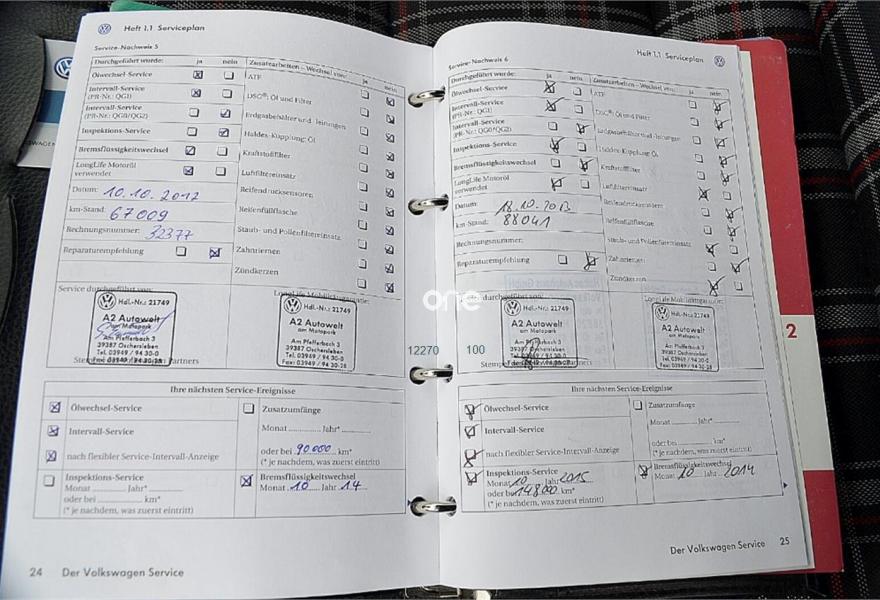 Heft 1.1 Serviceplan
Service-Nachweis 5
Durchgeführt wurde: ja nein
Ölwechsel-Service
Intervall-Service
(PR-Nr.: QG1)
Intervall-Service
(PR-Nr.: QG0/QG2)
Inspektions-Service
Bremsflüssigkeitswechsel
LongLife Motoröl
verwendet
Datum: 10.10.2012
km-Stand: 67009
Rechnungsnummer: 32377
Reparaturempfehlung
Zusatzarbeiten – Wechsel von: ja nein
ATF
DSG®: Öl und Filter
Erdgasbehälter und -leitungen
Haldex-Kupplung: Öl
Kraftstofffilter
Luftfiltereinsatz
Reifendrucksensoren
Reifenfüllflasche
Staub- und Pollenfiltereinsatz
Zahnriemen
Zündkerzen
Service durchgeführt von:
LongLife Mobilitätsgarantie:
Hdl.-Nr.: 21749
A2 Autowelt
am Motopark
Am Pfefferbach 3
39387 Oschersleben
Tel. 03949 / 94 30-0
Fax: 03949 / 94 30-28
Hdl.-Nr.: 21749
A2 Autowelt
am Motopark
Am Pfefferbach 3
39387 Oschersleben
Tel. 03949 / 94 30-0
Fax: 03949 / 94 30-28
Partners
Ihre nächsten Service-Ereignisse
Ölwechsel-Service
Intervall-Service
nach flexibler Service-Intervall-Anzeige
Inspektions-Service
Monat Jahr*
oder bei km*
(* je nachdem, was zuerst eintritt)
Zusatzumfänge
Monat Jahr*
oder bei 90000 km*
(* je nachdem, was zuerst eintritt)
Bremsflüssigkeitswechsel
Monat 10 Jahr 14
24 Der Volkswagen Service
Heft 1.1 Serviceplan
Service-Nachweis 6
Durchgeführt wurde: ja nein
Ölwechsel-Service
Intervall-Service
(PR-Nr.: QG1)
Intervall-Service
(PR-Nr.: QG0/QG2)
Inspektions-Service
Bremsflüssigkeitswechsel
LongLife Motoröl
verwendet
Datum: 18.10.2013
km-Stand: 88041
Rechnungsnummer:
Reparaturempfehlung
Zusatzarbeiten – Wechsel von: ja nein
ATF
DSG®: Öl und Filter
Erdgasbehälter und -leitungen
Haldex-Kupplung: Öl
Kraftstofffilter
Luftfiltereinsatz
Reifendrucksensoren
Reifenfüllflasche
Staub- und Pollenfiltereinsatz
Zahnriemen
Zündkerzen
one
durchgeführt von:
LongLife Mobilitätsgarantie:
Hdl.-Nr.: 21749
A2 Autowelt
am Motopark
Am Pfefferbach 3
39387 Oschersleben
Hdl.-Nr.: 21749
A2 Autowelt
am Motopark
Am Pfefferbach 3
39387 Oschersleben
Tel. 03949 / 94 30-0
Fax: 03949 / 94 30-28
12270 100
Partners
Ihre nächsten Service-Ereignisse
Ölwechsel-Service
Intervall-Service
nach flexibler Service-Intervall-Anzeige
Inspektions-Service
Monat 10 Jahr 2015
oder bei 148000 km*
(* je nachdem, was zuerst eintritt)
Zusatzumfänge
Monat Jahr*
oder bei km*
(* je nachdem, was zuerst eintritt)
Bremsflüssigkeitswechsel
Monat 10 Jahr 2014
Der Volkswagen Service 25
2